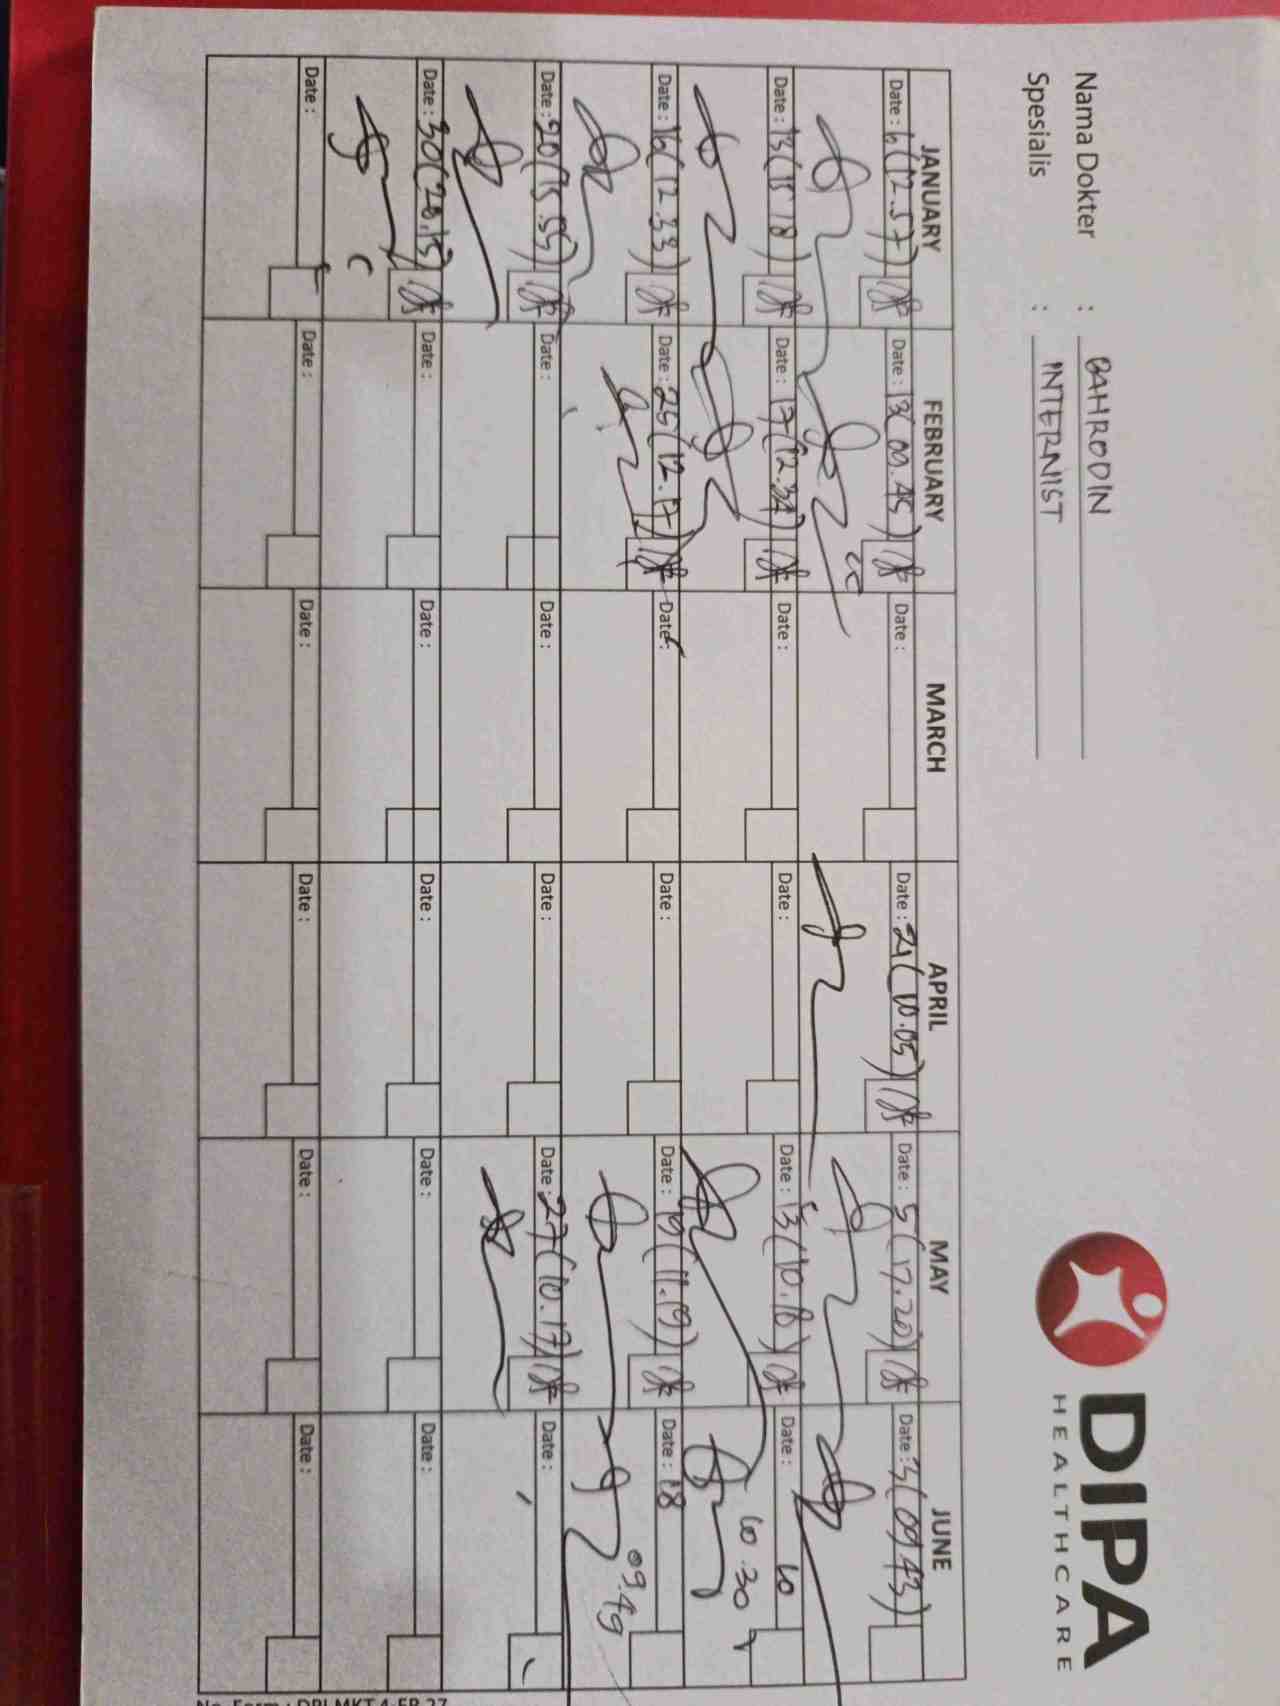 DIPA
HEALTHCARE
Nama Dokter : BAHRODIN
Spesialis : INTERNIST
JANUARY FEBRUARY MARCH APRIL MAY JUNE
Date : 6 (12.57) Date : 13 (09.45) Date : Date : 21 (10.05) Date : 5 (17.20) Date : 3 (09.43)
Date : 13 (15.18) Date : 17 (12.34) Date : Date : Date : 13 (10.18) Date : 10
10.30
Date : 16 (12.33) Date : 25 (12.17) Date : Date : Date : 19 (11.19) Date : 18
09.49
Date : 20 (15.55) Date : Date : Date : Date : 27 (10.17) Date :
Date : 30 (20.15) Date : Date : Date : Date : Date :
Date : Date : Date : Date : Date : Date :